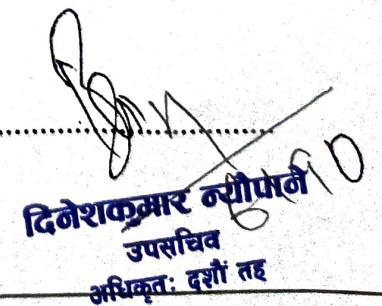 दिनेशकुमार न्यौपाने
उपसचिव
अधिकृतः दशौं तह